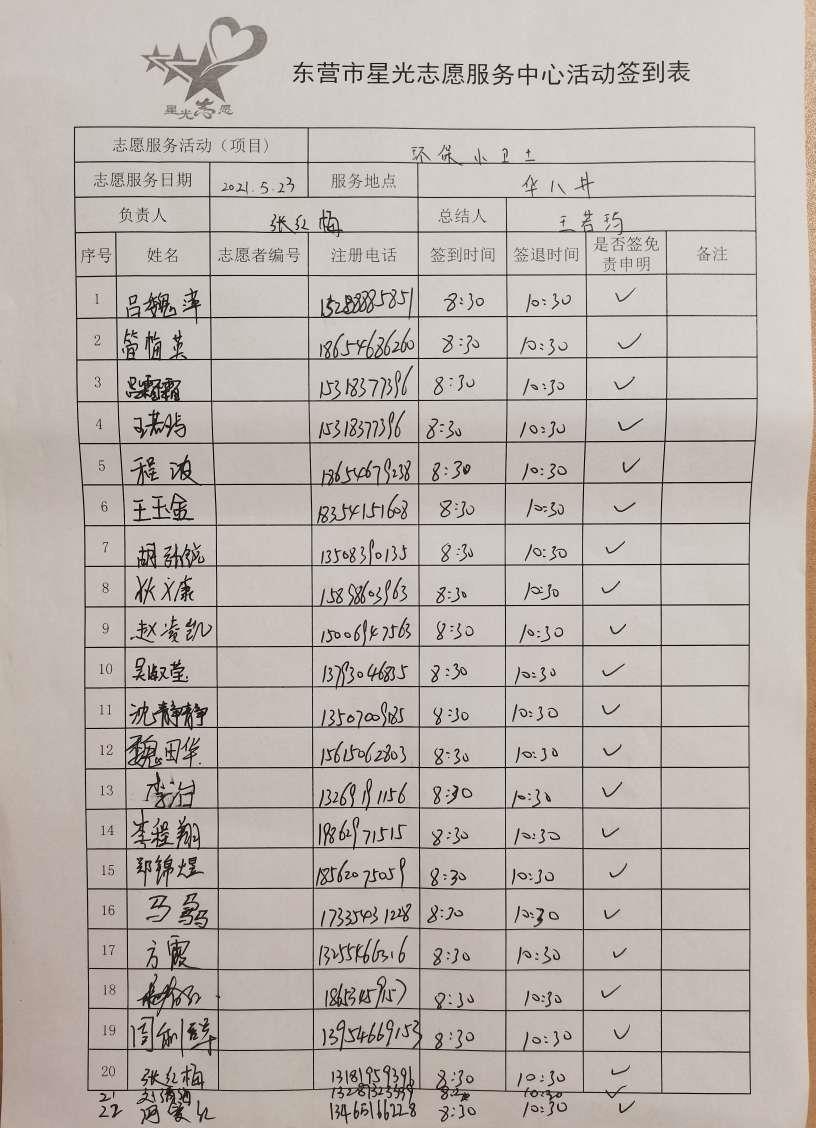 星光志愿
东营市星光志愿服务中心活动签到表
志愿服务活动（项目） 环保小卫士
志愿服务日期 2021.5.23 服务地点 华八井
负责人 张红梅 总结人 王若筠
序号 姓名 志愿者编号 注册电话 签到时间 签退时间 是否签免责申明 备注
1 吕魏萍 8:30 10:30 ✓
2 管梅英 18654686260 8:30 10:30 ✓
3 吴霜霜 15318377396 8:30 10:30 ✓
4 王若筠 15318377396 8:30 10:30 ✓
5 程波 18654679238 8:30 10:30 ✓
6 王玉金 18354151608 8:30 10:30 ✓
7 胡 13508390135 8:30 10:30 ✓
8 狄文康 15898603963 8:30 10:30 ✓
9 赵凌凯 15006947563 8:30 10:30 ✓
10 吴淑莹 13793046835 8:30 10:30 ✓
11 沈静静 13507009185 8:30 10:30 ✓
12 魏田华 15615062803 8:30 10:30 ✓
13 李治 13269191156 8:30 10:30 ✓
14 李程翔 19862971515 8:30 10:30 ✓
15 郑锦煜 18562075059 8:30 10:30 ✓
16 马骉 17335431228 8:30 10:30 ✓
17 方霞 13255466316 8:30 10:30 ✓
18 8:30 10:30 ✓
19 周 13954669153 8:30 10:30 ✓
20 张红梅 13181959396 8:30 10:30 ✓
21 10:30 ✓
22 13465166228 8:30 10:30 ✓